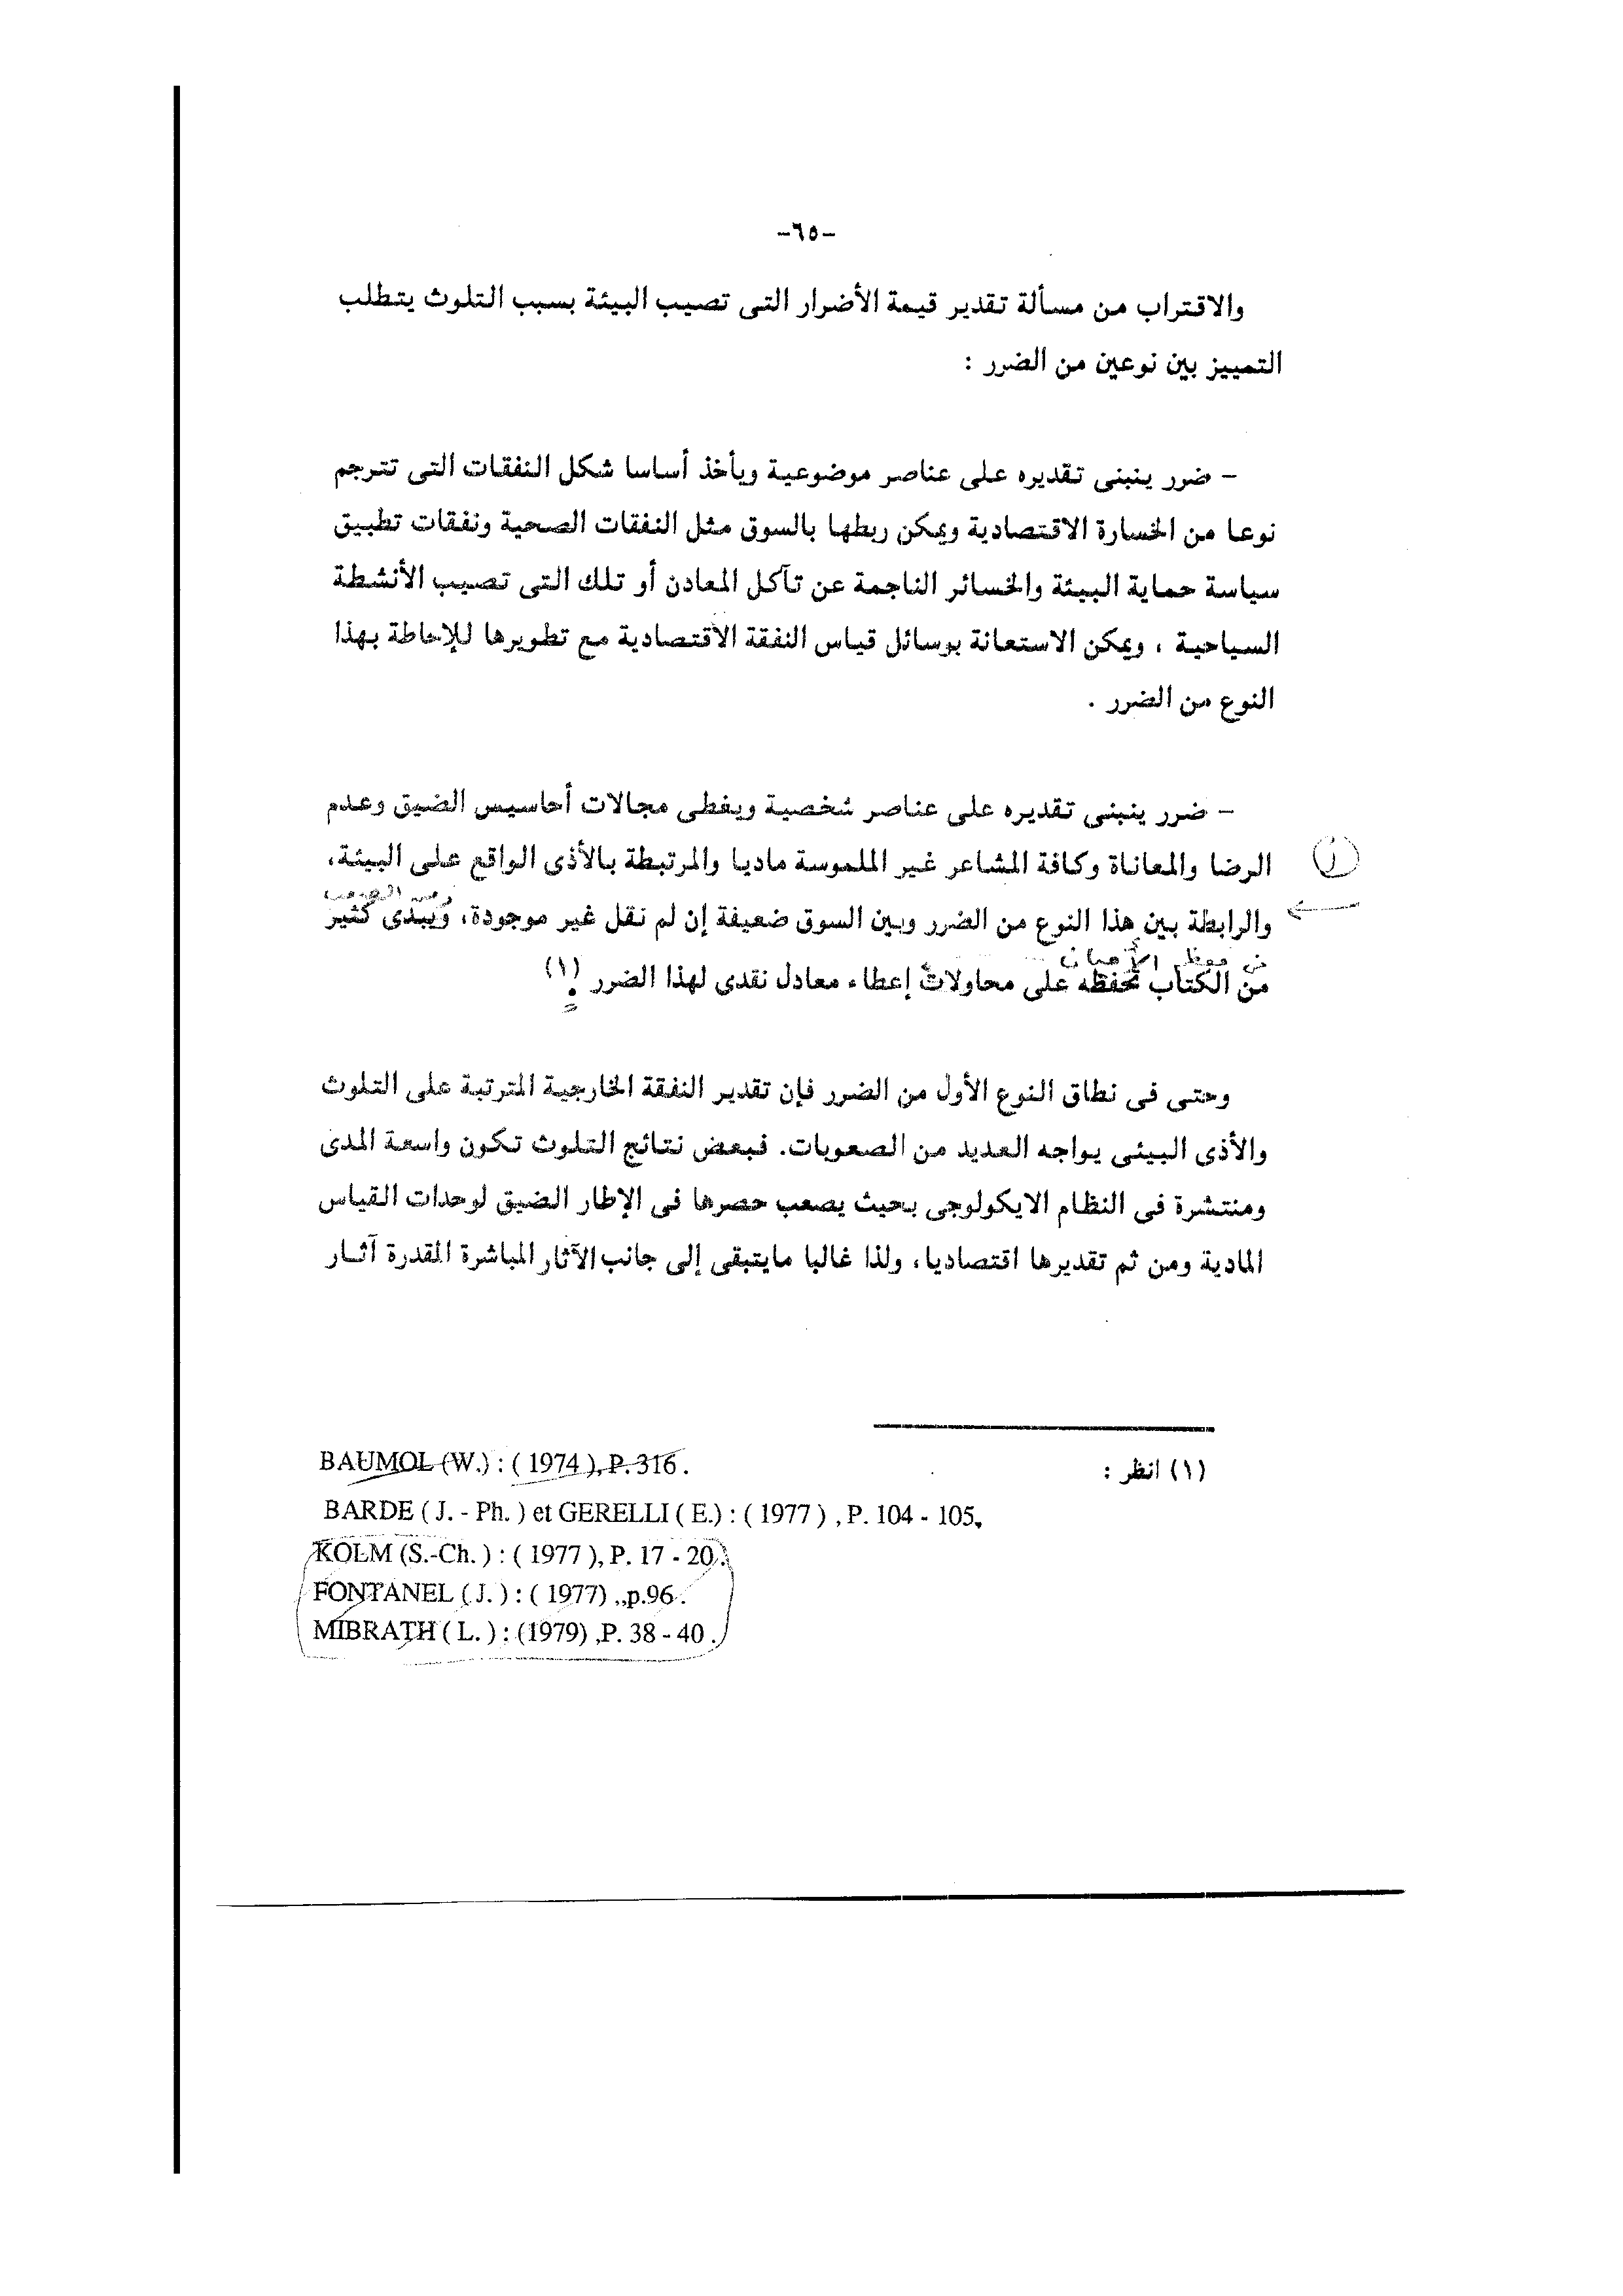 -٦٥-
والاقتراب من مسألة تقدير قيمة الأضرار التى تصيب البيئة بسبب التلوث يتطلب
التمييز بين نوعين من الضرر :
- ضرر ينبنى تقديره على عناصر موضوعية ويأخذ أساسا شكل النفقات التى تترجم
نوعا من الخسارة الاقتصادية ويمكن ربطها بالسوق مثل النفقات الصحية ونفقات تطبيق
سياسة حماية البيئة والخسائر الناجمة عن تآكل المعادن أو تلك التى تصيب الأنشطة
السياحية ، ويمكن الاستعانة بوسائل قياس النفقة الاقتصادية مع تطويرها للإحاطة بهذا
النوع من الضرر .
- ضرر ينبنى تقديره على عناصر شخصية ويغطى مجالات أحاسيس الضيق وعدم
الرضا والمعاناة وكافة المشاعر غير الملموسة ماديا والمرتبطة بالأذى الواقع على البيئة،
ومن الصعب
والرابطة بين هذا النوع من الضرر وبين السوق ضعيفة إن لم نقل غير موجودة، ويبدى كثير
الأحيان
من الكتاب تحفظه على محاولات إعطاء معادل نقدى لهذا الضرر . (١)
وحتى فى نطاق النوع الأول من الضرر فإن تقدير النفقة الخارجية المترتبة على التلوث
والأذى البيئى يواجه العديد من الصعوبات. فبعض نتائج التلوث تكون واسعة المدى
ومنتشرة فى النظام الايكولوجى بحيث يصعب حصرها فى الإطار الضيق لوحدات القياس
المادية ومن ثم تقديرها اقتصاديا، ولذا غالبا مايتبقى إلى جانب الآثار المباشرة المقدرة آثار
(١) انظر :
BAUMOL (W.) : ( 1974 ), P. 316 .
BARDE ( J. - Ph. ) et GERELLI ( E.) : ( 1977 ) , P. 104 - 105.
KOLM (S.-Ch. ) : ( 1977 ), P. 17 - 20 .
FONTANEL ( J. ) : ( 1977) ,,p.96 .
MIBRATH ( L. ) : (1979) ,P. 38 - 40 .